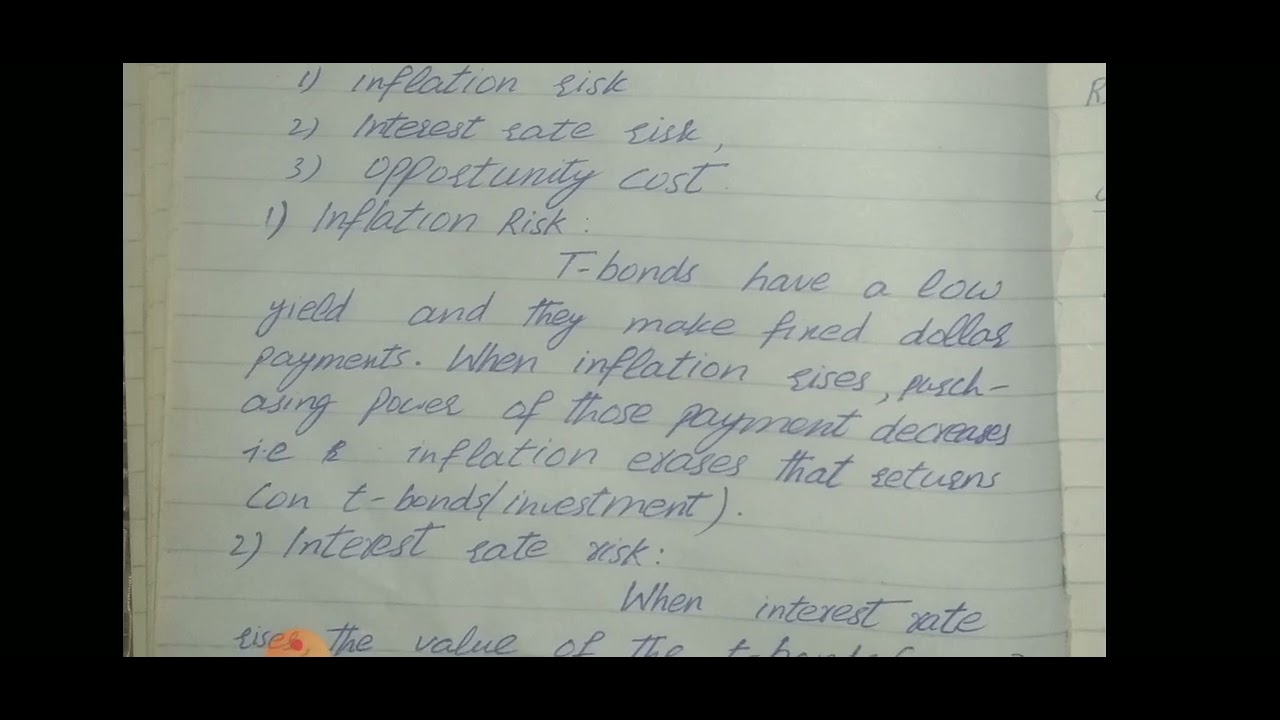 1) Inflation risk
2) Interest rate risk,
3) Opportunity cost.
1) Inflation Risk:
T-bonds have a low
yield and they make fixed dollar
payments. When inflation rises, purch-
asing power of those payment decreases
i.e inflation erases that returns
(on t-bonds/investment).
2) Interest rate risk:
When interest rate
rises, the value of the t-bonds
R